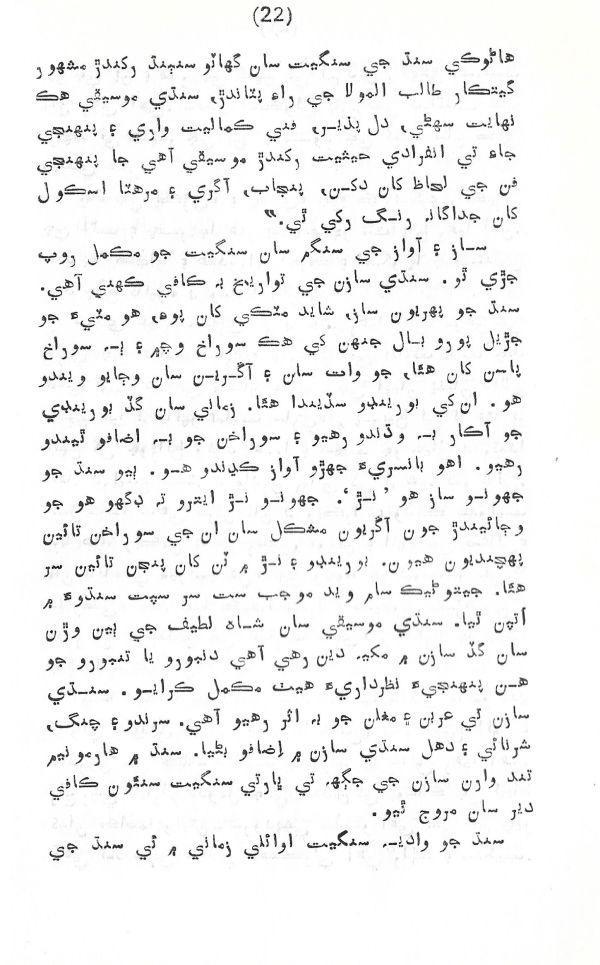 (22)
هاڻوڪي سنڌ جي سنگيت سان گهاٽو سنٻنڌ رکندڙ مشهور
گيتڪار طالب المولا جي راءِ پٽاندڙ، سنڌي موسيقي هڪ
نهايت سهڻي، دل پذير، فني ڪماليت واري ۽ پنهنجي
جاءِ تي انفرادي حيثيت رکندڙ موسيقي آهي جا پنهنجي
فن جي لحاظ کان دکن، پنجاب، آگري ۽ مرهٽا اسڪول
کان جداگانہ رنگ رکي ٿي."
ساز ۽ آواز جي سنگم سان سنگيت جو مڪمل روپ
جڙي ٿو. سنڌي سازن جي تواريخ بہ ڪافي ڪهني آهي.
سنڌ جو پهريون ساز، شايد مٽڪي کان پوءِ، هو مٽيءَ جو
جڙيل پورو بال جنهن کي هڪ سوراخ وچ ۾ ۽ ٻہ سوراخ
پاسن کان هئا، جو وات سان ۽ آڱرين سان وڄايو ويندو
هو. ان کي بورينڊو سڏيندا هئا. زماني سان گڏ بورينڊي
جو آڪار بہ وڌندو رهيو ۽ سوراخن جو بہ اضافو ٿيندو
رهيو. اهو بانسريءَ جهڙو آواز ڪڍندو هو. ٻيو سنڌ جو
جهونو ساز هو ’نڙ‘. جهونو نڙ ايترو تہ ڊگهو هو جو
وڄائيندڙ جون آڱريون مشڪل سان ان جي سوراخن تائين
پهچنديون هيون. بورينڊو ۽ نڙ ۾ ٽن کان پنجن تائين سر
هئا. جيتوڻيڪ سام ويد موجب ست سر سپت سنڌوءَ ۾
اُتپن ٿيا. سنڌي موسيقي سان شاهہ لطيف جي ٻين وڙن
سان گڏ سازن ۾ مکيہ دين رهي آهي دنبورو يا تنبورو جو
هن پنهنجيءَ نظرداريءَ هيٺ مڪمل ڪرايو. سنڌي
سازن تي عربن ۽ مغلن جو بہ اثر رهيو آهي. سرندو ۽ چنگ،
شرنائي ۽ دهل سنڌي سازن ۾ اِضافو بڻيا. سنڌ ۾ هارمونيم
تند وارن سازن جي جڳهہ تي ڀارتي سنگيت سنٿون ڪافي
دير سان مروج ٿيو.
سنڌ جو واديہ سنگيت اوائلي زماني ۾ ئي سنڌ جي